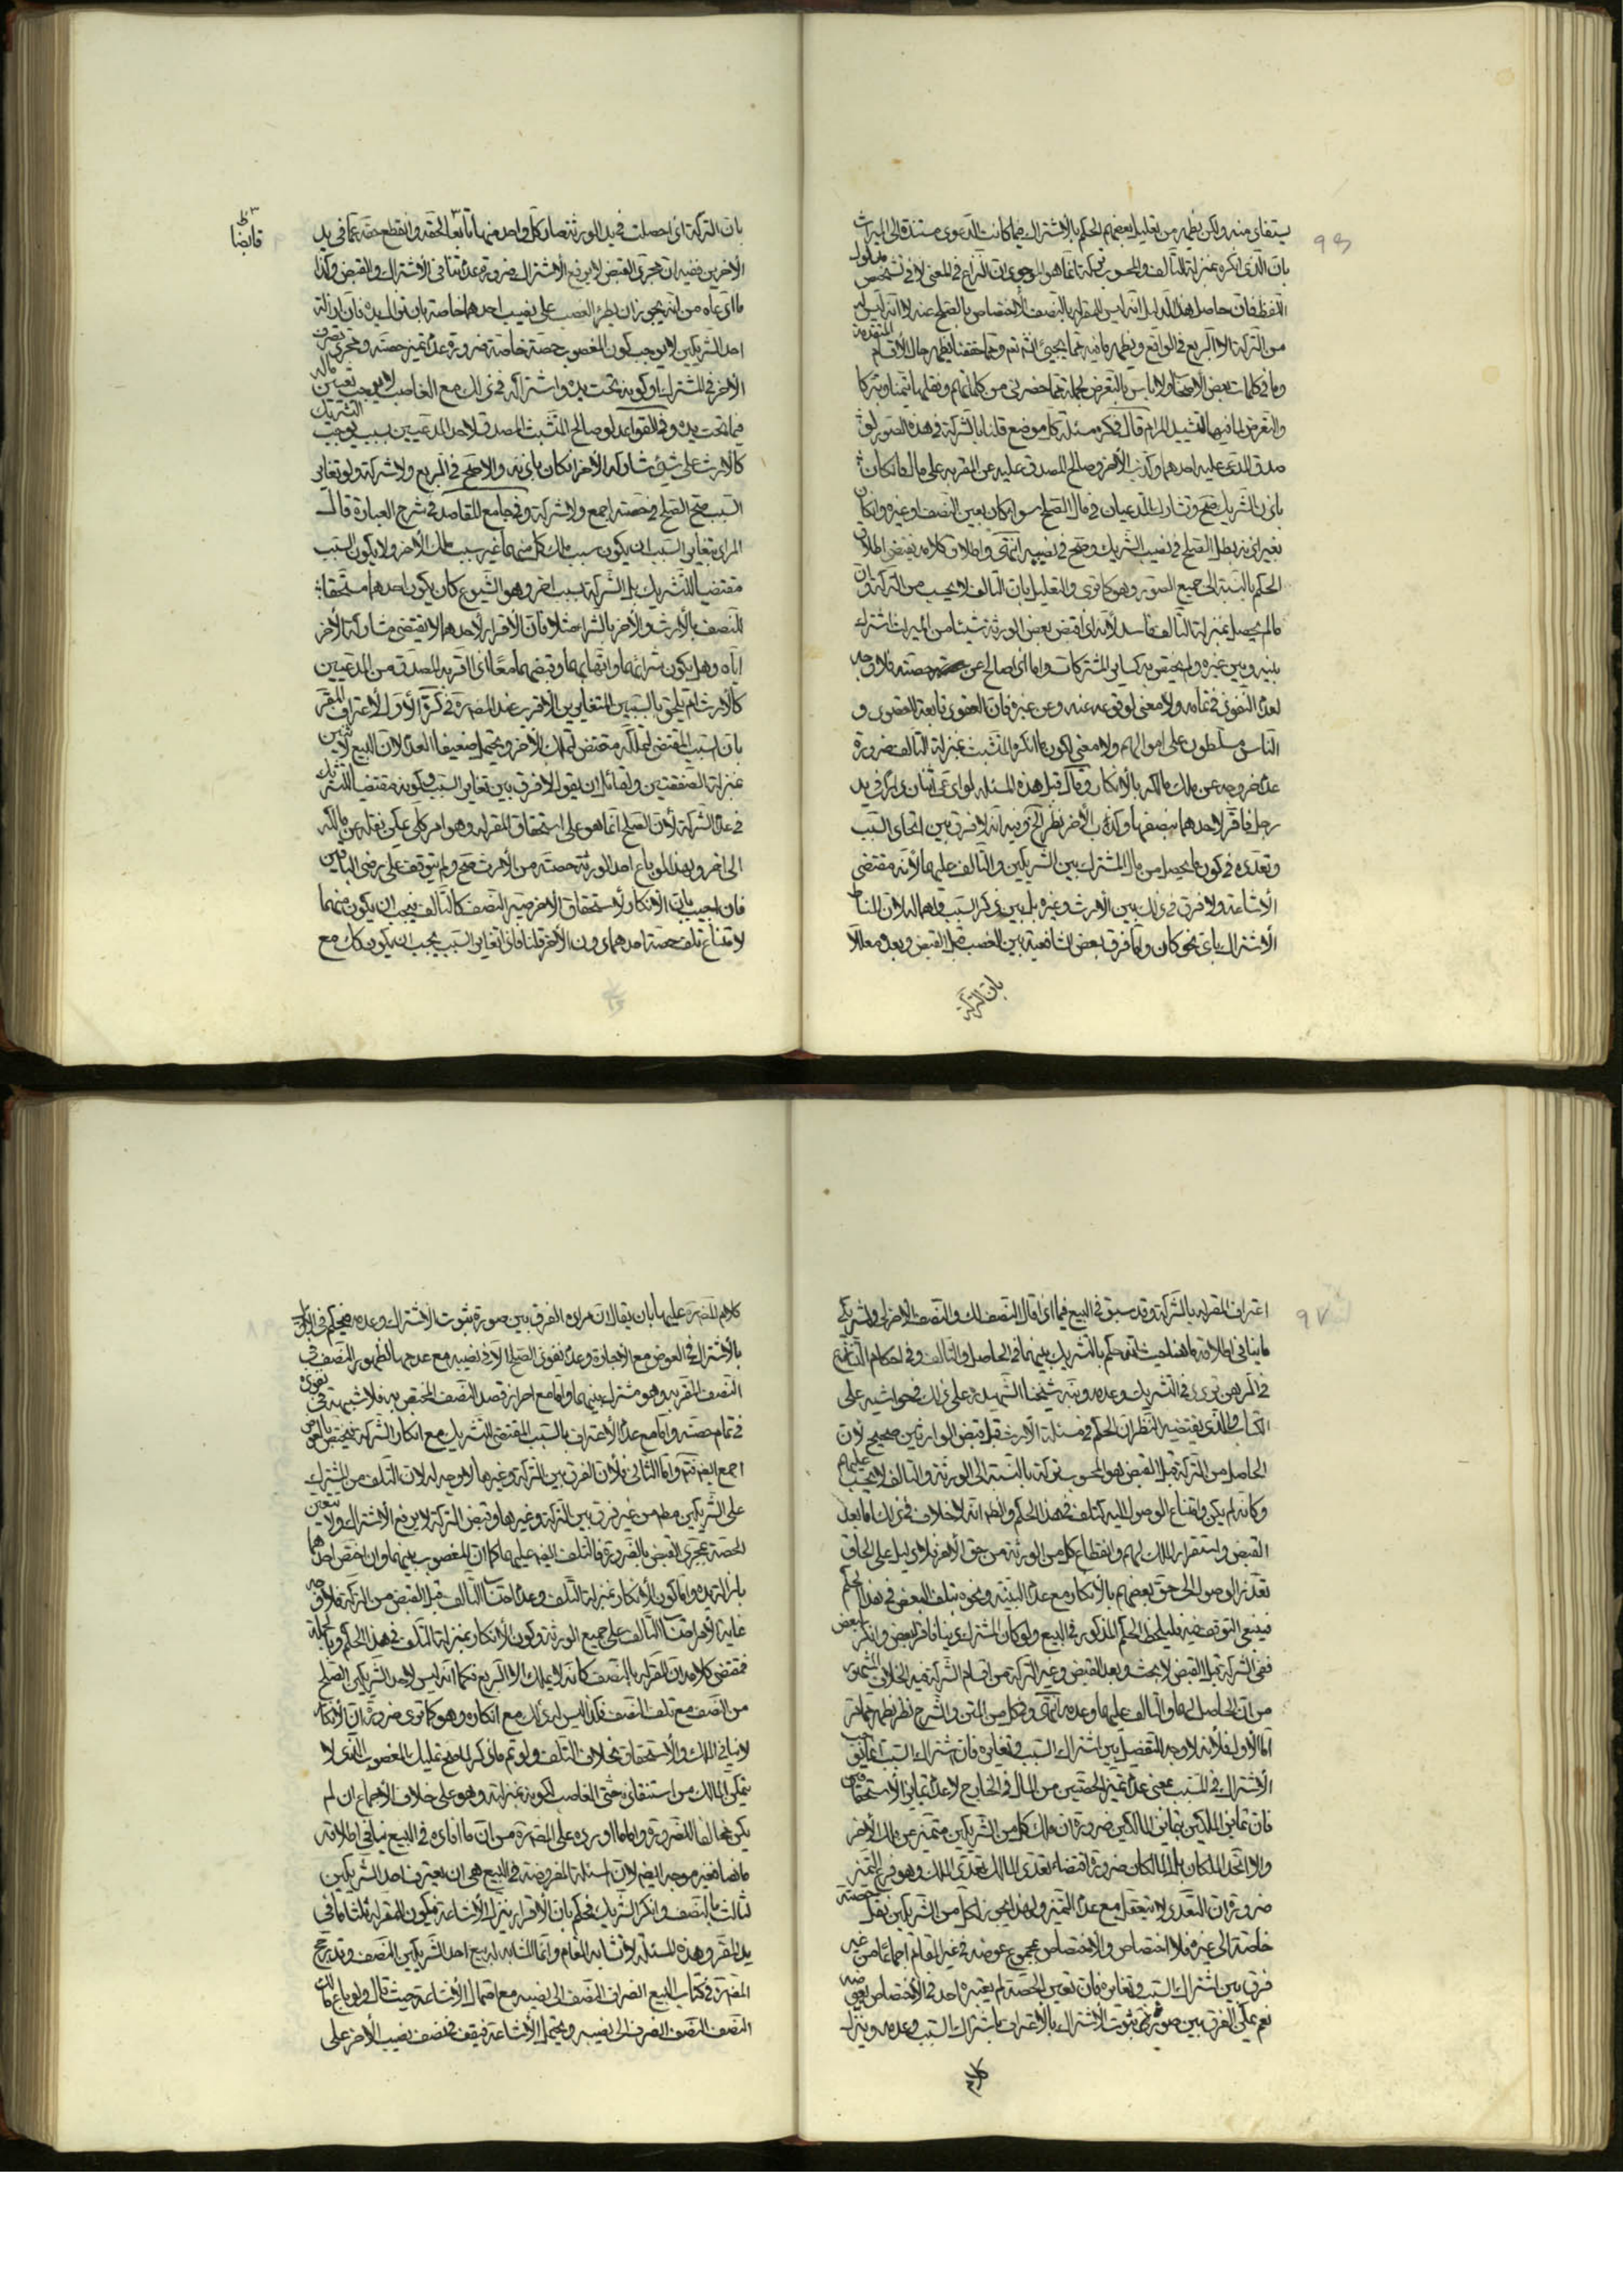 يستفاد منه ولكن يظهر من تعليل بعضهم الحكم بالاشتراك فيما كانت الدعوى مستندة الى الميراث
بان الذى انكره بمنزلة التالف والمحسوب تركة انما هو الموجود ان النزاع فى المعنى لا فى تشخيص مدلول
اللفظ فان حاصل هذا الدليل انه ليس للمقر له بالنصف الاختصاص بالصلح عنه لانه ليس له
من التركة الا الربع فى الواقع ويظهر ما فيه مما يجيئ انشاء الله تعالى ومما حققنا يظهر حال الاقسام المتقدمة
وما فى كلمات بعض الاصحاب ولا باس بالتعرض لجملة مما حضرنى من كلماتهم ونقلها تيمنا وتبركا
والتعرض لما فيها لتشييد المرام قال فى كره مسئلة كل موضع قلنا بالشركة فى هذه الصور لو
صدق المدعى عليه احدهما وكذب الاخر وصالح المصدق عليه عن المقر به على مال فان كان
باذن الشريك صح وتشارك المدعيان فى مال الصلح سواء كان بعين النصف او غيره وان كان
بغير اذنه بطل الصلح فى نصيب الشريك وصح فى نصيبه انتهى واطلاق كلامه يقتضى اطلاق
الحكم بالنسبة الى جميع الصور وهو كما ترى والتعليل بان التالف لا يحسب من التركة وان
ما لم يحصل بمنزلة التالف فاسد لانه اذا قبض بعض الورثة شيئا من الميراث اشترك
بينه وبين غيره ولم يختص به كساير المشتركات واما اذا صالح عن حصته فلا وجه
لعدم النفوذ فى تمامه ولا معنى لوقوعه عنه وعن غيره فان العقود تابعة للقصود و
الناس مسلطون على اموالهم ولا معنى لكون ما انكره المتشبث بمنزلة التالف ضرورة
عدم خروجه عن ملك مالكه بالانكار وقال قبل هذه المسئلة لو ادعى اثنان دارا فى يد
رجل فاقر لاحدهما بنصفها وكذب الاخر نظر الخ وفيه انه لا فرق بين اتحاد السبب
وتعدده فى كون ما يحصل من مال المشترك بين الشريكين والتالف عليهما لانه مقتضى
الاشاعة ولا فرق فى ذلك بين الارث وغيره بل بين ذكر السبب واهماله لان المناط
الاشتراك باى نحو كان واما فرق بعض الشافعية بين الغصب قبل القبض وبعده معللا
بان التركة
بان التركة اذا حصلت فى يد الورثة صار كل واحد منهما لحقه وانقطع حقه عما فى يد
قابضا
الاخر ففيه ان مجرد القبض لا يرفع الاشتراك ضرورة عدم تنافى الاشتراك والقبض وكذا
ما ادعاه من انه يجوز ان يطرء الغصب على نصيب احدهما خاصة بان تزال يده فان ازالة
احد الشريكين لا يوجب كون المغصوب حصة خاصة ضرورة عدم تميز حصته ومجرد تصرف
الاخر فى المشترك او كونه تحت يده واشتراكه فى ذلك مع الغاصب لا يوجب تعيين ماله
فيما تحت يده وفى القواعد لو صالح المتشبث المصدق لاحد المدعيين بسبب يوجب التشريك
كالارث على شيئ شاركه الاخر ان كان باذنه والا صح فى الربع ولا شركة ولو تغاير
السبب صح الصلح فى حصته اجمع ولا شركة وفى جامع المقاصد فى شرح العبارة قال
المراد بتغاير السبب ان يكون سبب ملك كل منهما غير سبب ملك الاخر ولا يكون السبب
مقتضيا للتشريك بل الشركة بسبب اخر وهو الشيوع كان يكون احدهما مستحقا
للنصف بالارث والاخر بالشراء مثلا فان الاقرار لاحدهما لا يقتضى مشاركة الاخر
اياه وهل يكون شرائهما واتهابهما وقبضهما معا اذا اقر به المصدق من المدعيين
كالارث ام يلحق بالسببين المتغايرين الاقرب عند المصنف فى كره الاول لاعتراف المقر
بان السبب المقتضى لتملكه مقتض لتملك الاخر ويحتمل ضعيفا العدم لان البيع لاثنين
بمنزلة الصفقتين ولقائل ان يقول لا فرق بين تغاير السبب وكونه مقتضيا للتشريك
فى عدم الشركة لان الصلح انما هو على استحقاق المقر له وهو امر كلى يمكن نقله عن مالكه
الى اخر ولهذا لو باع احد الورثة حصته من الارث صح ولم يتوقف على رضى الباقين
فان اجيب بان الانكار لاستحقاق الاخر صير النصف كالتالف فيجب ان يكون منهما
لامتناع تلف حصة احدهما دون الاخر قلنا فاذا تغاير السبب يجب ان يكون كك مع
اعتراف المقر له بالشركة وقد سبق فى البيع فيما اذا قال النصف لك والنصف الاخر لى ولشريكى
ما ينافى اطلاقه ما هنا حيث انه حكم بالتشريك بينهما فى الحاصل والتالف وفى احكام التنازع
فى الرهن تردد فى التشريك وعدمه ونبه شيخنا الشهيد على ذلك فى حواشيه على
الكتاب والذى يقتضيه النظر ان الحكم فى مسئلة الارث قبل قبض الوارثين صحيح لان
الحاصل من التركة قبل القبض هو المحسوب تركة بالنسبة الى الورثة والتالف لا يحسب عليهم
وكانه لم يكن وامتناع الوصول اليه كتلف فى هذا الحكم والظاهر انه لا خلاف فى ذلك اما بعد
القبض واستقرار الملك لهم وانقطاع كل من الورثة من حق الاخر فلا دليل على الحاق
تعذر الوصول الى حق بعضهم بالانكار مع عدم البينة ونحوه بتلف البعض فى هذا الحكم
فينبغى التوقف فيه فليلحظ الحكم المذكور فى البيع ولو كان المشترك دينا فاقر لبعض وانكر بعض
ففى الشركة قبل القبض لا بحث وبعد القبض وغير التركة من اقسام الشركة فيه الخلاف المشهور
من ان الحاصل لهما والتالف عليهما وعدمه انتهى وفى كل من المتن والشرح نظر يظهر مما مر
اما الاول فلانه لا وجه للتفصيل بين اشتراك السبب وتغايره فان اشتراك السبب انما يوجب
الاشتراك فى المسبب بمعنى عدم تميز الحصتين من المال فى الخارج لا عدم تمايز الاستحقاقين
فان تمايز الملكين بتمايز المالكين ضرورة ان ملك كل من الشريكين متميز عن ملك الاخر
والا اتحد الملكان بل المالكان ضرورة اقتضاء تعدد المالك تعدد الملك وهو فرع التميز
ضرورة ان التعدد لا يتعقل مع عدم التميز ولهذا يجوز لكل من الشريكين نقل حصته
خاصة الى غيره فلا اختصاص والاختصاص بمجموع عوضه فى غير المقام اجماعا من غير
فرق بين اشتراك السبب وتغايره فان تعين الحصة لم يعتبره احد فى الاختصاص بعوضه
نعم يمكن الفرق بين صورتى ثبوت الاشتراك بالاعتراف باشتراك السبب وعدمه وينزل
كلام
كلام المصنف عليها بان يقال ان مراده الفرق بين صورة ثبوت الاشتراك وعدمه فيحكم فى الاول
بالاشتراك فى العوض مع الاجازة وعدم نفوذ الصلح الا فى نصيبه مع عدمها لظهور النصف فى
النصف المقر به وهو مشترك بينهما واما مع احراز قصد النصف المختص به فلا شبهة فى نفوذه
فى تمام حصته واما مع عدم الاعتراف بالسبب المقتضى للتشريك مع انكار الشركة فيختص بالعوض
اجمع ايضا واما الثانى فلان الفرق بين التركة وغيرها لا وجه له لان التلف من المشترك
على الشريكين مط من غير فرق بين التركة وغيرها وقبض التركة لا يرفع الاشتراك ولا يتعين
الحصة بمجرد القبض بالضرورة فالتلف ايضا عليهما كما ان المغصوب بينهما وان اختص احدهما
بازالة يده واما كون الانكار بمنزلة التلف وعدم احتساب التالف قبل القبض من التركة فلا وجه
غاية الامر احتساب التالف على جميع الورثة وكون الانكار بمنزلة التلف فى هذا الحكم وبالجملة
فمقتضى كلامه ان المقر له بالنصف كانه لا يملك الا الربع فكما انه ليس لاحد الشريكين الصلح
من النصف مع تلف النصف فكذا ليس له ذلك مع انكاره وهو كما ترى ضرورة ان الانكار
لا ينافى الملك والاستحقاق بخلاف التلف ولو تم ما ذكر لما صح تمليك المغصوب الذى لا
يتمكن المالك من استنقاذه حتى الغاصب لكونه بمنزلته وهو على خلاف الاجماع ان لم
يكن مخالفا للضرورة واما ما اورده على المصنف من ان ما افاده فى البيع ينافى اطلاقه
ما هنا فغير موجه ايضا لان المسئلة المفروضة فى البيع هى ان يعترف احد الشريكين
لثالث بالنصف وانكر الشريك فحكم بان الاقرار ينزل الاشاعة فيكون للمقر له ثلثا ما فى
يد المقر وهذه المسئلة لا تشابه المقام وانما المشابه له بيع احد الشريكين النصف وقد رجح
المصنف فى كتاب البيع انصراف النصف الى نصيبه مع احتمال الاشاعة حيث قال ولو باع مالك
النصف النصف انصرف الى نصيبه ويحتمل الاشاعة فيقف فى نصف نصيب الاخر على